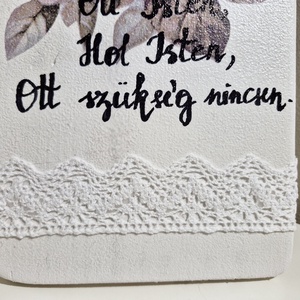 Ott Isten,
Hol Isten,
Ott szükség nincsen.